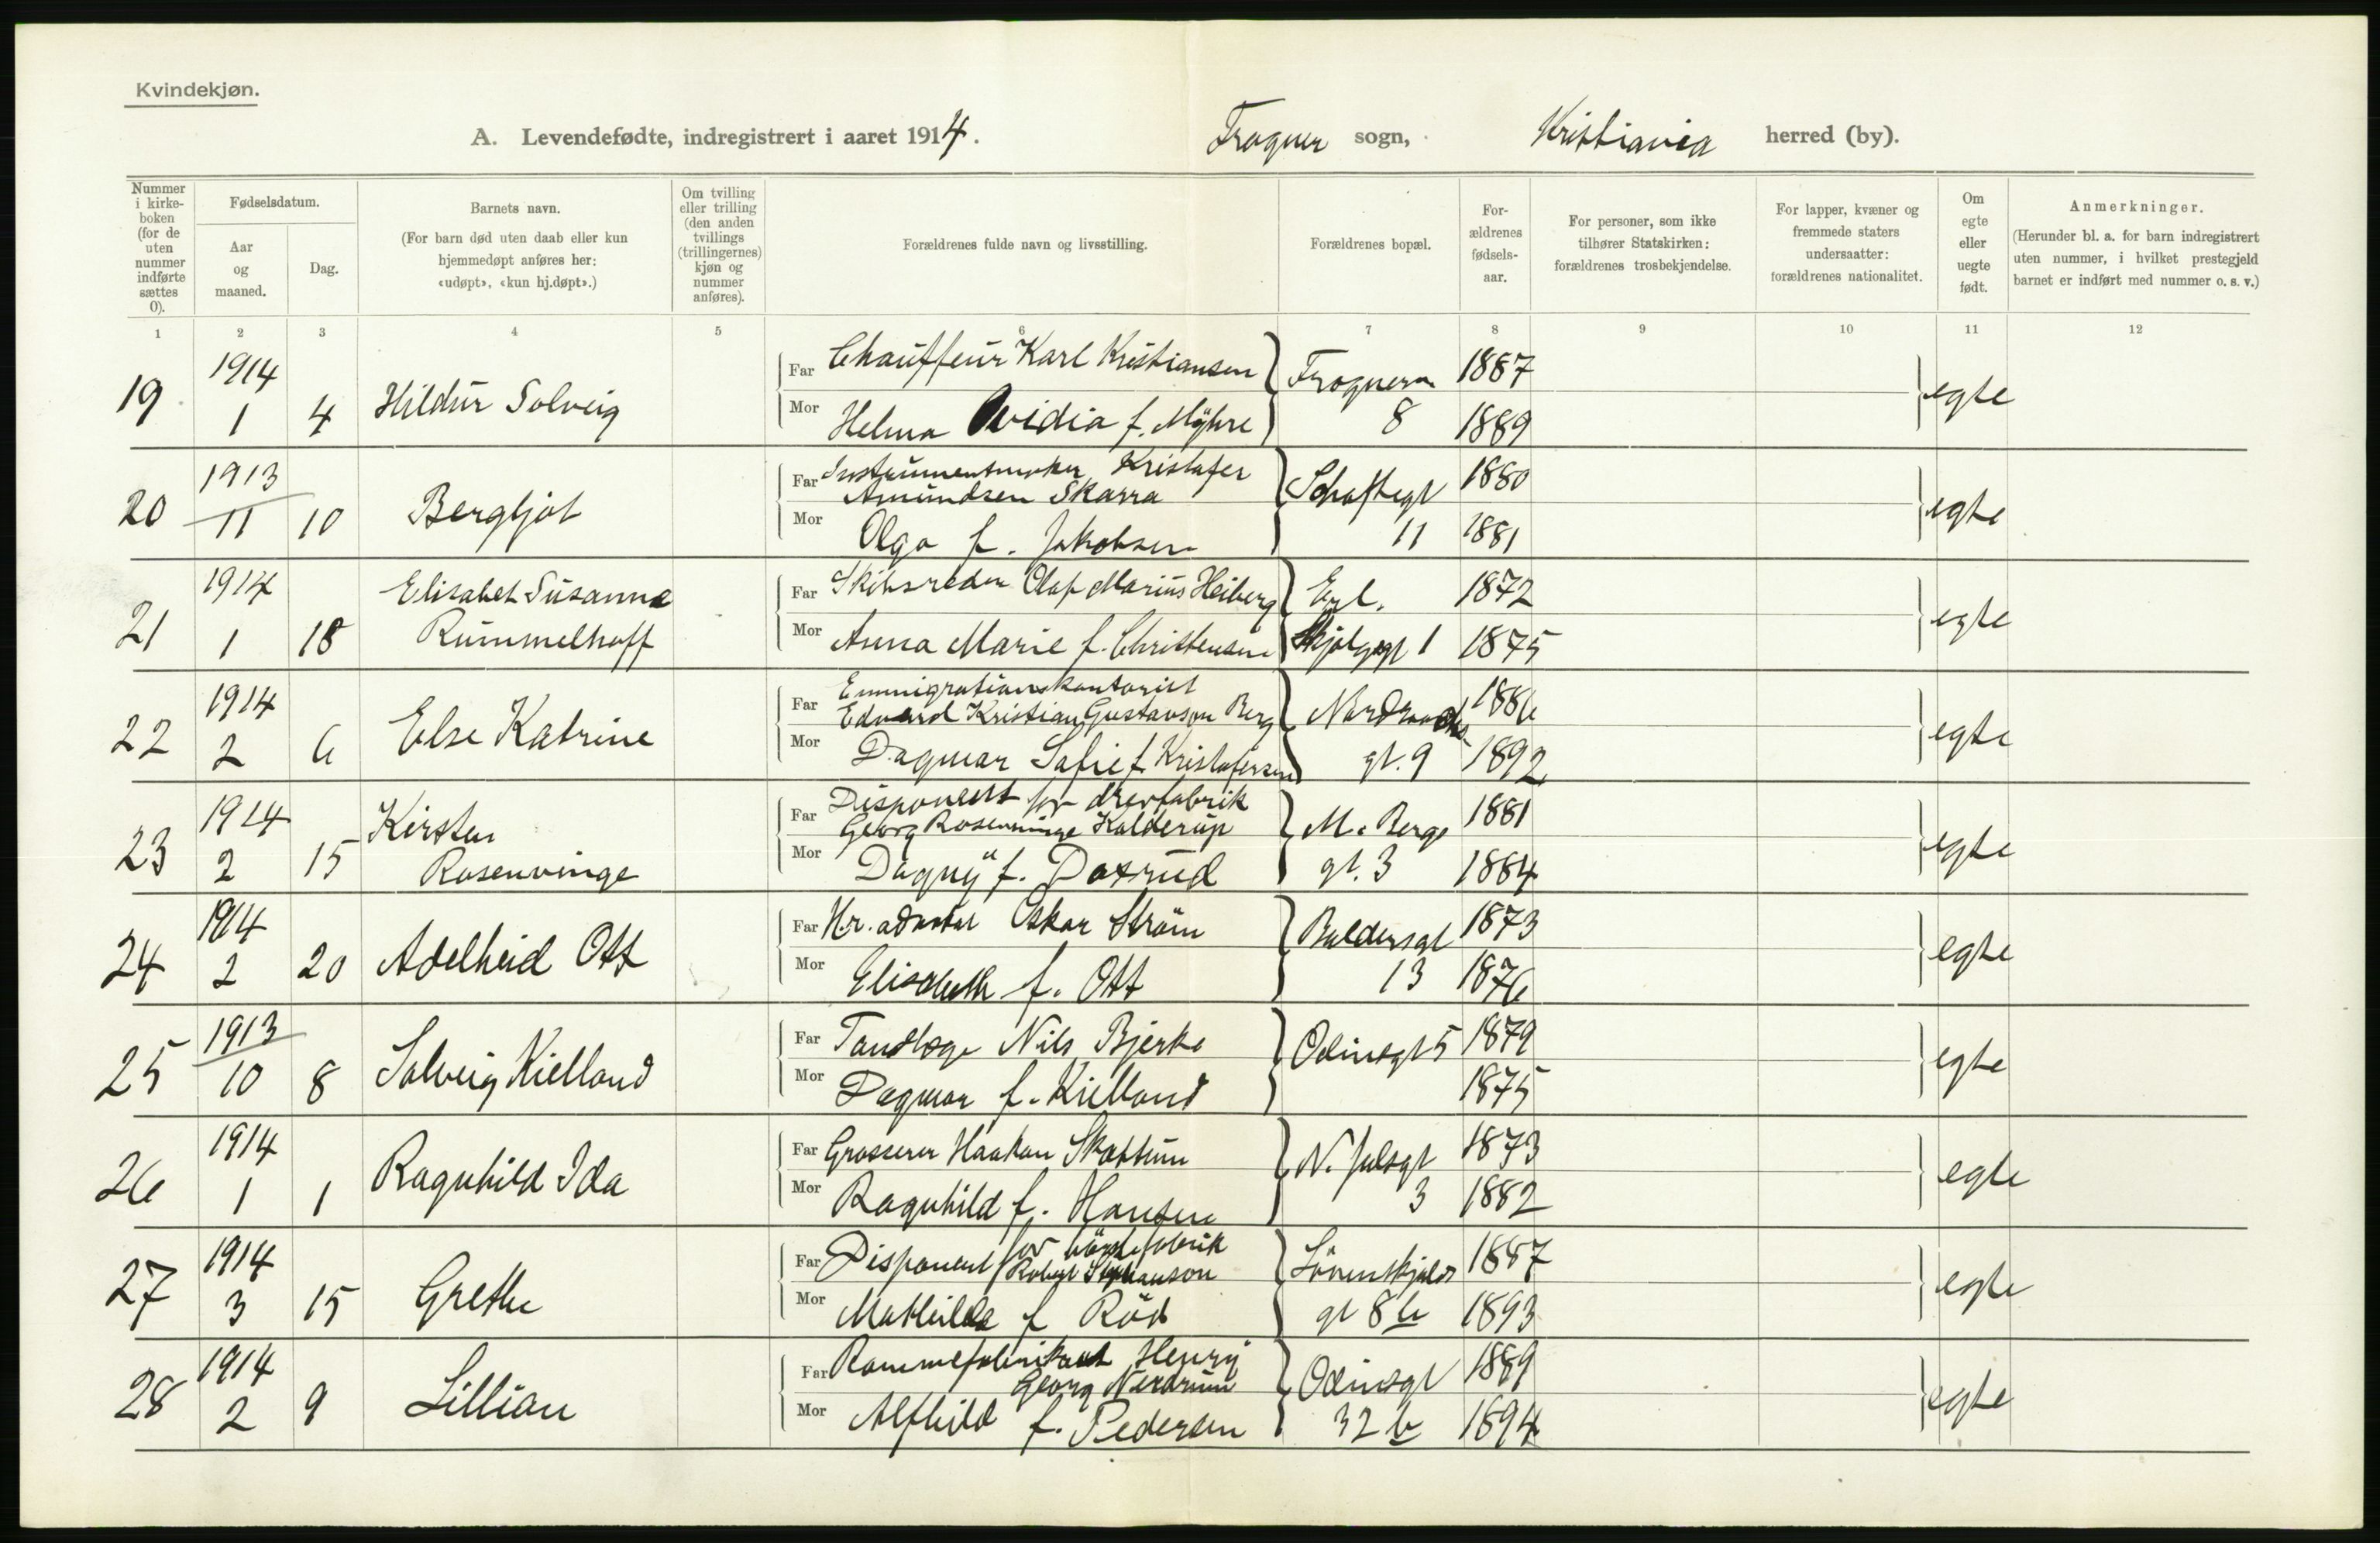 Kvindekjøn.
A. Levendefødte, indregistrert i aaret 1914. Frogner sogn, Kristiania herred (by).
Nummer i kirke-boken (for de uten nummer indførte sættes 0).
Fødselsdatum.
Aar og maaned.
Dag.
Barnets navn.
(For barn død uten daab eller kun hjemmedøpt anføres her: «udøpt», «kun hj.døpt».)
Om tvilling eller trilling (den anden tvillings (trillingernes) kjøn og nummer anføres).
Forældrenes fulde navn og livsstilling.
Forældrenes bopæl.
For-ældrenes fødsels-aar.
For personer, som ikke tilhører Statskirken: forældrenes trosbekjendelse.
For lapper, kvæner og fremmede staters undersaatter: forældrenes nationalitet.
Om egte eller uegte født.
Anmerkninger.
(Herunder bl. a. for barn indregistrert uten nummer, i hvilket prestegjeld barnet er indført med nummer o. s. v.)
1 2 3 4 5 6 7 8 9 10 11 12
19 1914 1 4 Hildur Solveig
Far Chauffeur Karl Kristiansen
Mor Helma Ovidia f. Myhre
8 1887 1889 egte
20 1913 11 10 Bergljot
Far Instrumentmaker Kristofer
Amundsen Skarra
Mor Olga f. Jakobsen
Schaftegt 11 1880 1881 egte
21 1914 1 18 Elisabet Susanne
Rummelhoff
Far Skibsreder Olaf Marius Heiberg
Mor Anna Marie f. Christensen
gt 1 1872 1875 egte
22 1914 2 6 Else Katrine
Far Emmigrationskontorist
Edvard Kristian Gustavson Berg
Mor Dagmar Sofie f. Kristofersen
gt. 9 1886 1892 egte
23 1914 2 15 Kirsten
Rosenvinge
Far Disponent for drevfabrik
Georg Rosenvinge Kolderup
Mor Dagny f. Daxrud
M. Bergs
gt. 3 1881 1884 egte
24 1914 2 20 Adelheid Ott
Far H.r. advokat Oskar Strøm
Mor Elisabeth f. Ott
Baldersgt
13 1873 1876 egte
25 1913 10 8 Solveig Kielland
Far Tandlæge Nils Bjerke
Mor Dagmar f. Kielland
Odinsgt 5 1879 1875 egte
26 1914 1 1 Ragnhild Ida
Far Grosserer Haakon Skattum
Mor Ragnhild f. Hansen
N. Julsgt
3 1873 1882 egte
27 1914 3 15 Grethe
Far Disponent for børstefabrik
Robert Stephanson
Mor Mathilde f Rød
Løvenskjolds
gt 8 b 1887 1893 egte
28 1914 2 9 Lillian
Far Rammefabrikant Henry
Georg Nerdrum
Mor Alfhild f. Pedersen
Odinsgt
32 b 1889 1894 egte